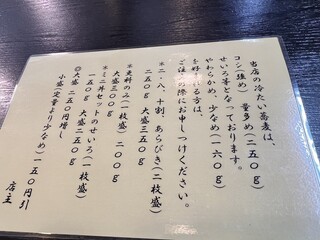 当店の冷たい蕎麦は、
コシ強め)　量多め(二五〇g)
せいろ等となっております。
やわらかめ、少なめ(一六〇g)
を好まれる方は、
ご注文の際にお申しつけください。
※二・八、十割、あらびき(二枚盛)
二五〇g　大盛三五〇g
※更科のみ(一枚盛)　二〇〇g
大盛三〇〇g
※ミニ丼セットのせいろ(一枚盛)
一五〇g　大盛二五〇g
◎大盛　二五〇円増し
小盛(定量より少なめ)一五〇円引
店主